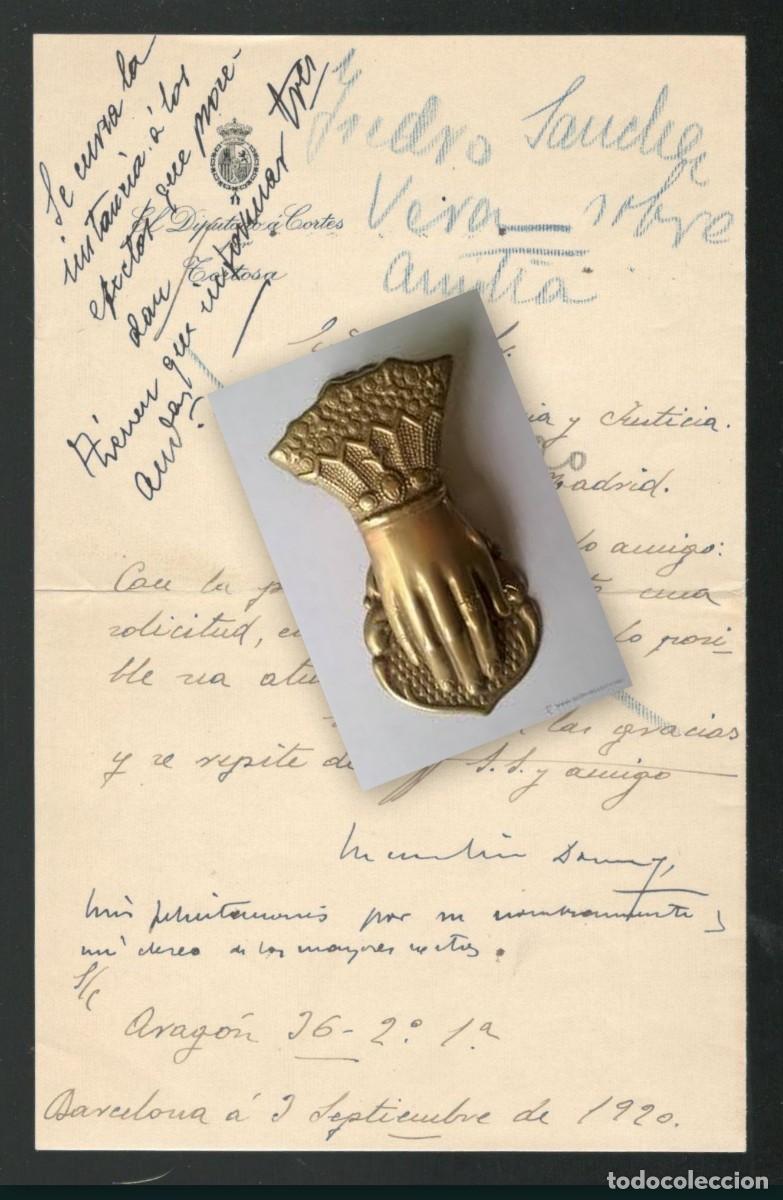 Se cursa la
instancia á los
efectos que proce-
dan
Tienen que informar tres
audas
Ysidro Sanchez
Vera sobre
amtia
El Diputado á Cortes
Tortosa
y Justicia.
Madrid.
amigo:
Con la una
solicitud, lo posi-
ble sea
las gracias
y se repite de S.S. y amigo
Marcelino Domingo
Mis felicitaciones por su nombramiento y
mi deseo de los mayores exitos.
S/c
Aragón 36-2º 1ª
Barcelona á 3 Septiembre de 1920.
todocoleccion